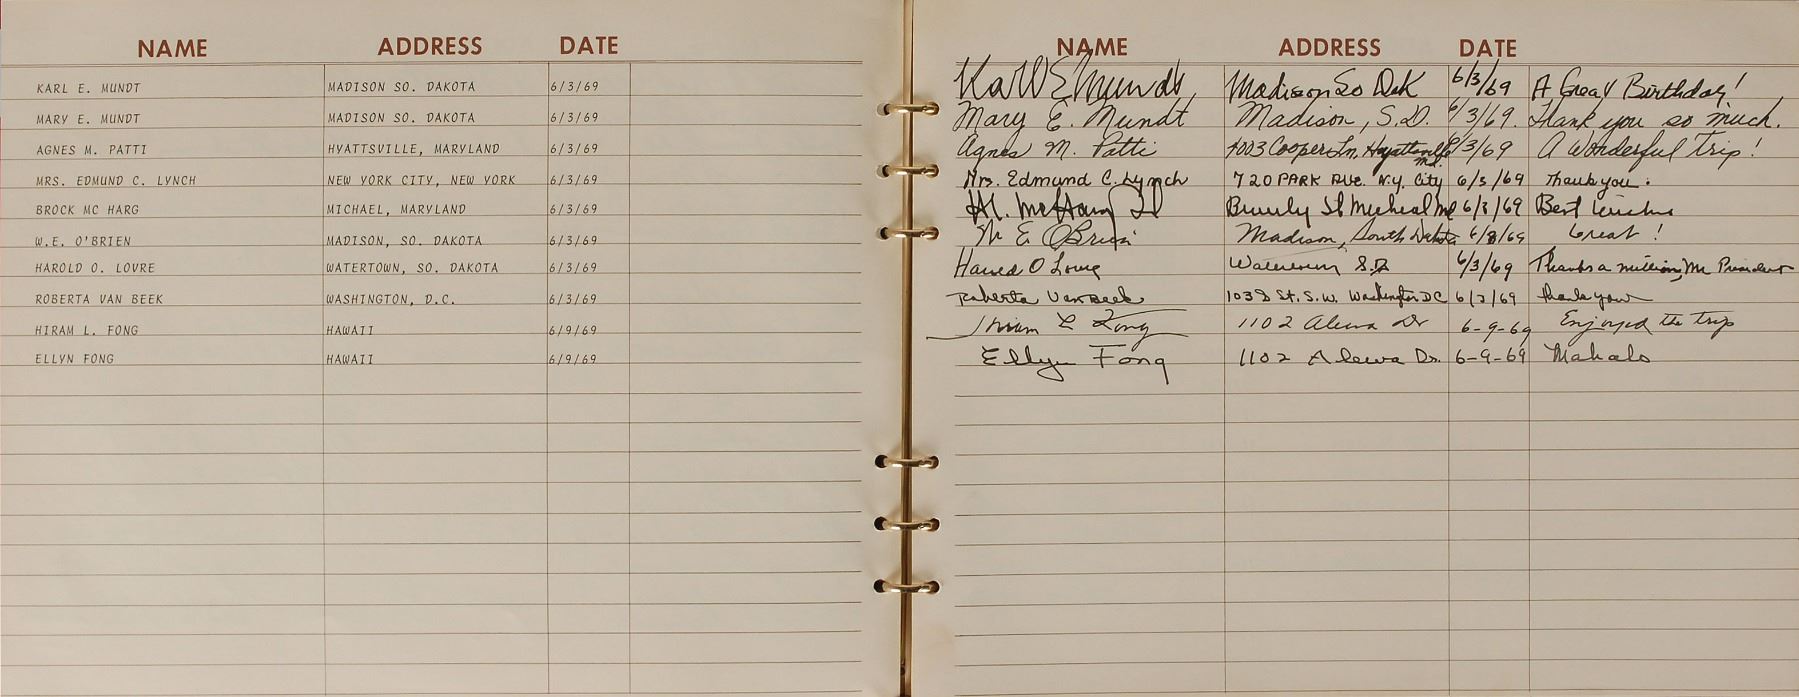 NAME ADDRESS DATE
KARL E. MUNDT MADISON SO. DAKOTA 6/3/69
MARY E. MUNDT MADISON SO. DAKOTA 6/3/69
AGNES M. PATTI HYATTSVILLE, MARYLAND 6/3/69
MRS. EDMUND C. LYNCH NEW YORK CITY, NEW YORK 6/3/69
BROCK MC HARG MICHAEL, MARYLAND 6/3/69
W.E. O'BRIEN MADISON, SO. DAKOTA 6/3/69
HAROLD O. LOVRE WATERTOWN, SO. DAKOTA 6/3/69
ROBERTA VAN BEEK WASHINGTON, D.C. 6/3/69
HIRAM L. FONG HAWAII 6/9/69
ELLYN FONG HAWAII 6/9/69
NAME ADDRESS DATE
Karl E Mundt Madison So Dak 6/3/69 A Great Birthday!
Mary E. Mundt Madison, S.D. 6/3/69. Thank you so much.
Agnes M. Patti 4003 Cooper Ln, Hyattsville Md. 6/3/69 A Wonderful trip!
Mrs. Edmund C. Lynch 720 PARK AVE. N.Y. City 6/3/69 Thank you.
McHarg St Micheal Md 6/3/69 Best wishes
W E O'Brien Madison, South Dakota 6/3/69 Great!
Harold O Lovre Watertown S.D 6/3/69 Thanks a million, Mr President
Roberta VanBeek St. S.W. Washington DC 6/3/69 thank you
Hiram L Fong 1102 Alewa Dr 6-9-69 Enjoyed the trip
Ellyn Fong 1102 Alewa Dr. 6-9-69 Mahalo